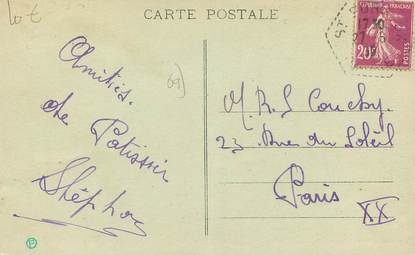 Lot
CARTE POSTALE
69)
Amitiés.
de Patissier
Stéphan
M. R. S Couchy.
23 Rue du Soleil
Paris
XX
20c
POSTES